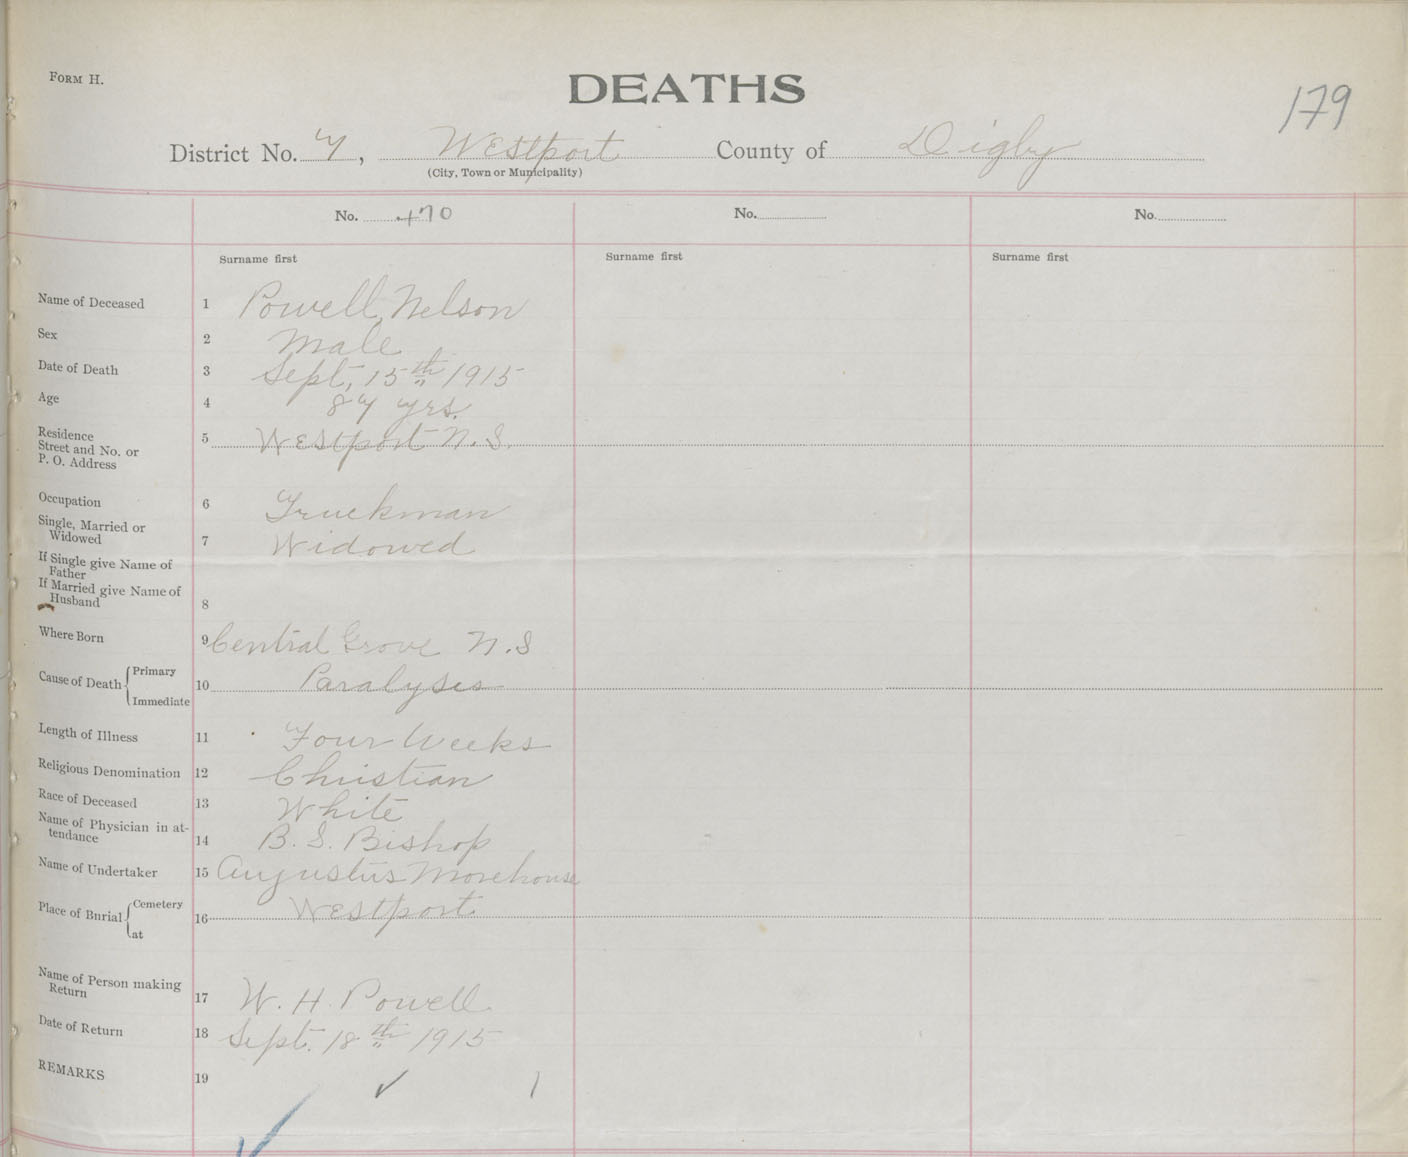 FORM H.
DEATHS
179
District No. 7, Westport County of Digby
(City, Town or Municipality)
No. 470 No. No.
Surname first Surname first Surname first
Name of Deceased 1 Powell, Nelson
Sex 2 Male
Date of Death 3 Sept, 15th 1915
Age 4 87 yrs.
Residence
Street and No. or 5 Westport N.S.
P. O. Address
Occupation 6 Truckman
Single, Married or
Widowed 7 Widowed
If Single give Name of
Father
If Married give Name of
Husband 8
Where Born 9 Central Grove N.S
Cause of Death Primary
10 Paralysis
Immediate
Length of Illness 11 Four Weeks
Religious Denomination 12 Christian
Race of Deceased 13 White
Name of Physician in at-
tendance 14 B. S. Bishop
Name of Undertaker 15 Augustus Morehouse
Place of Burial Cemetery
16 Westport
at
Name of Person making
Return 17 W. H. Powell
Date of Return 18 Sept. 18th 1915
REMARKS 19